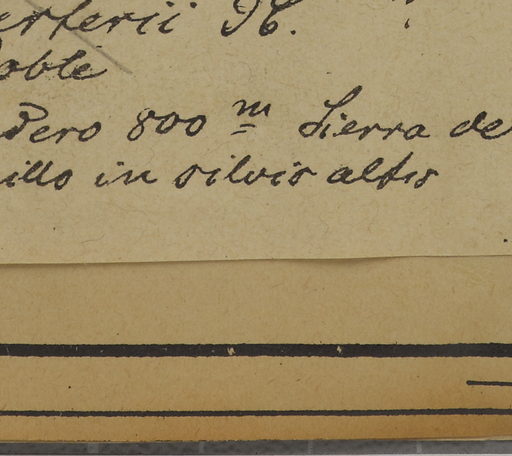 erterii H.
oble
Pero 800 m Sierra de
illo in silvis altis